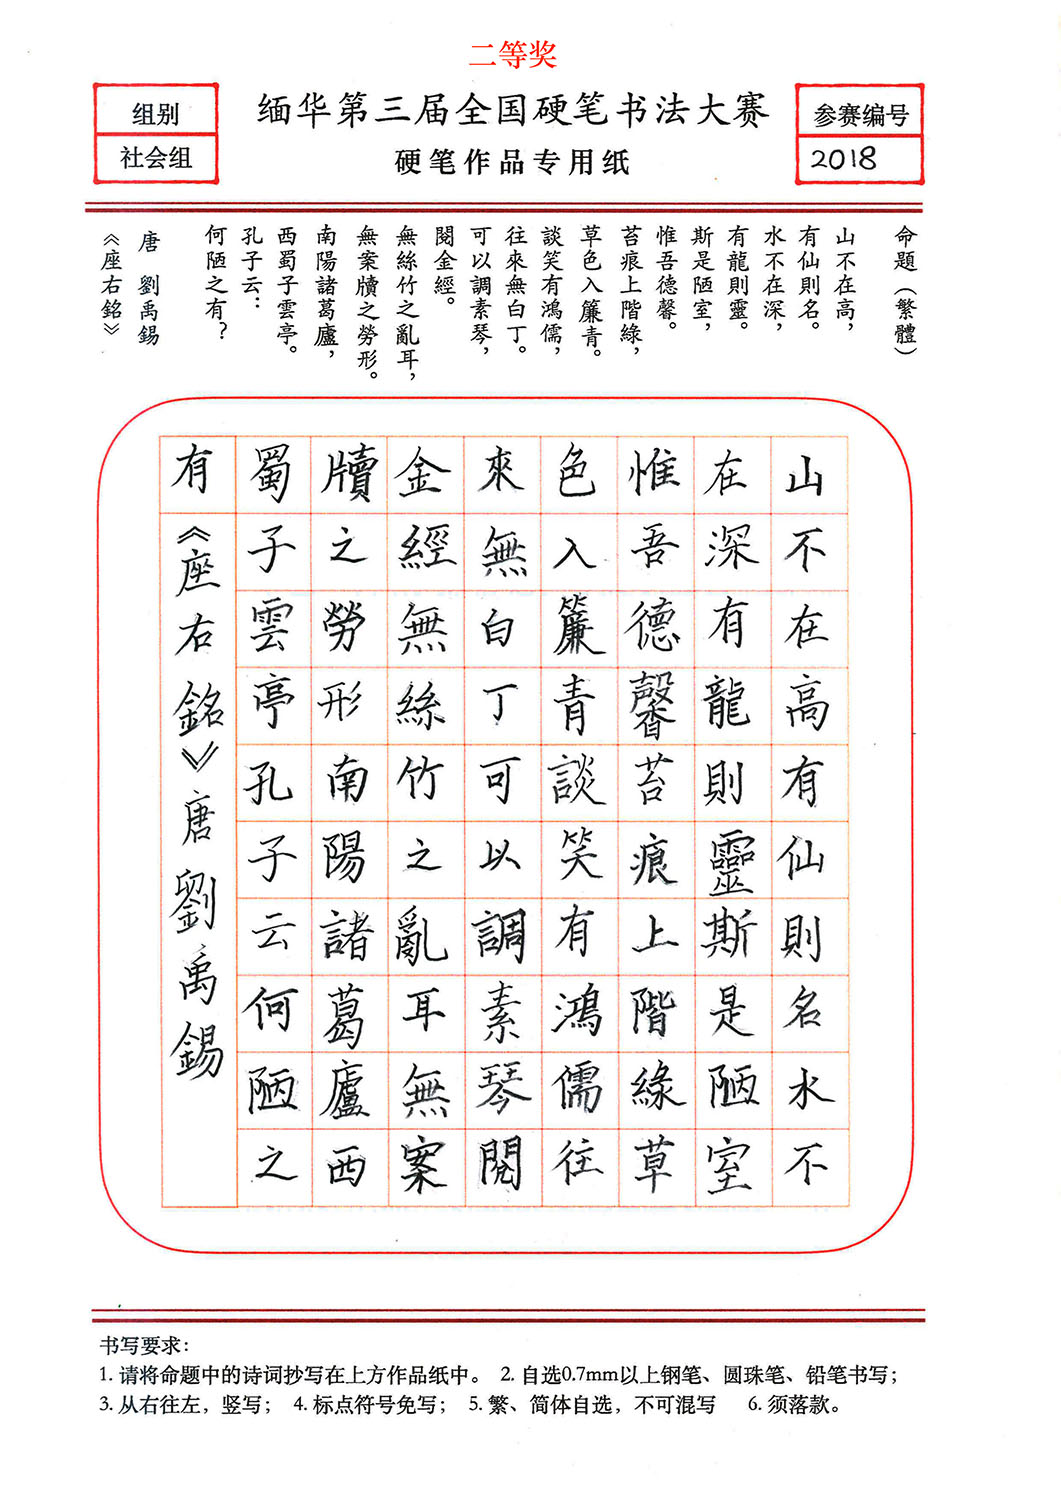 二等奖
组别
社会组
缅华第三届全国硬笔书法大赛
硬笔作品专用纸
参赛编号
2018
命題（繁體）
山不在高，
有仙則名。
水不在深，
有龍則靈。
斯是陋室，
惟吾德馨。
苔痕上階綠，
草色入簾青。
談笑有鴻儒，
往來無白丁。
可以調素琴，
閱金經。
無絲竹之亂耳，
無案牘之勞形。
南陽諸葛廬，
西蜀子雲亭。
孔子云：
何陋之有？
唐 劉禹錫
《座右銘》
山不在高有仙則名水不
在深有龍則靈斯是陋室
惟吾德馨苔痕上階綠草
色入簾青談笑有鴻儒往
來無白丁可以調素琴閱
金經無絲竹之亂耳無案
牘之勞形南陽諸葛廬西
蜀子雲亭孔子云何陋之
有《座右銘》唐劉禹錫
书写要求：
1. 请将命题中的诗词抄写在上方作品纸中。 2. 自选0.7mm以上钢笔、圆珠笔、铅笔书写；
3. 从右往左，竖写； 4. 标点符号免写； 5. 繁、简体自选，不可混写 6. 须落款。